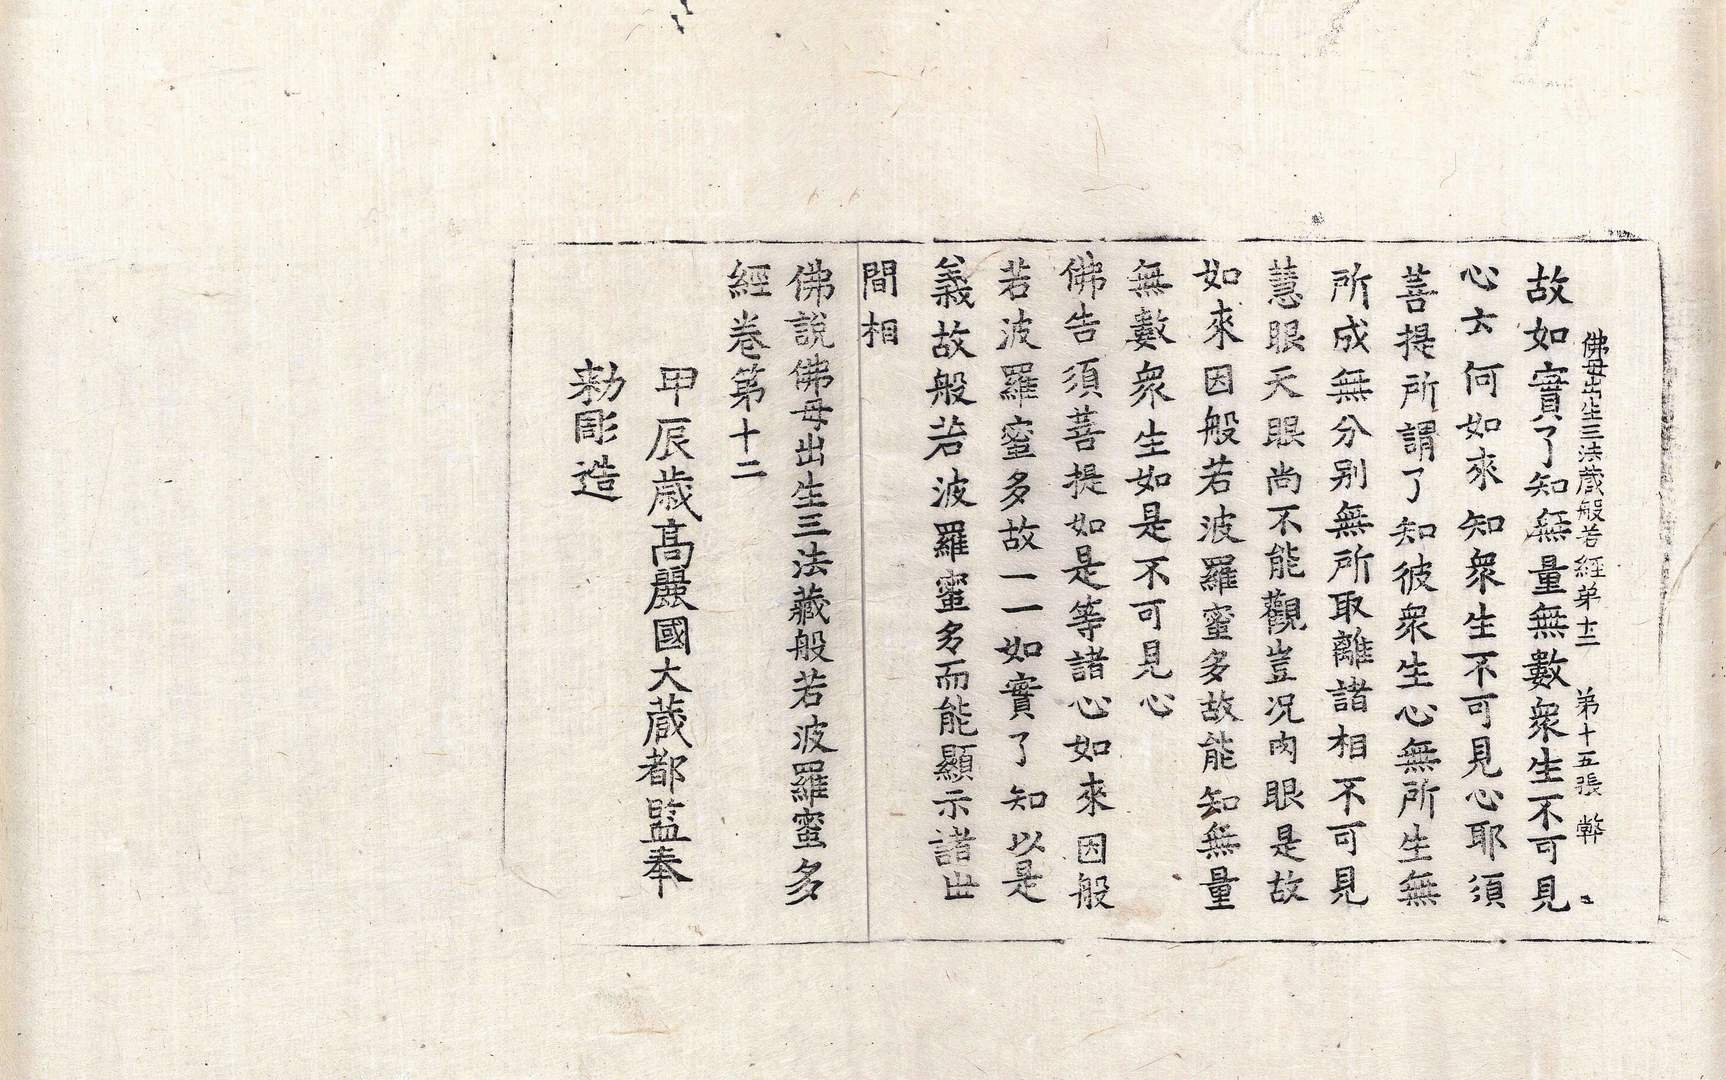 佛母出生三法藏般若經第十二 第十五張 幹
故如實了知無量無數衆生不可見
心云何如來知衆生不可見心耶須
菩提所謂了知彼衆生心無所生無
所成無分別無所取離諸相不可見
慧眼天眼尚不能觀豈況肉眼是故
如來因般若波羅蜜多故能知無量
無數衆生如是不可見心
佛告須菩提如是等諸心如來因般
若波羅蜜多故一一如實了知以是
義故般若波羅蜜多而能顯示諸世
間相
佛說佛母出生三法藏般若波羅蜜多
經卷第十二
甲辰歲高麗國大藏都監奉
勑彫造